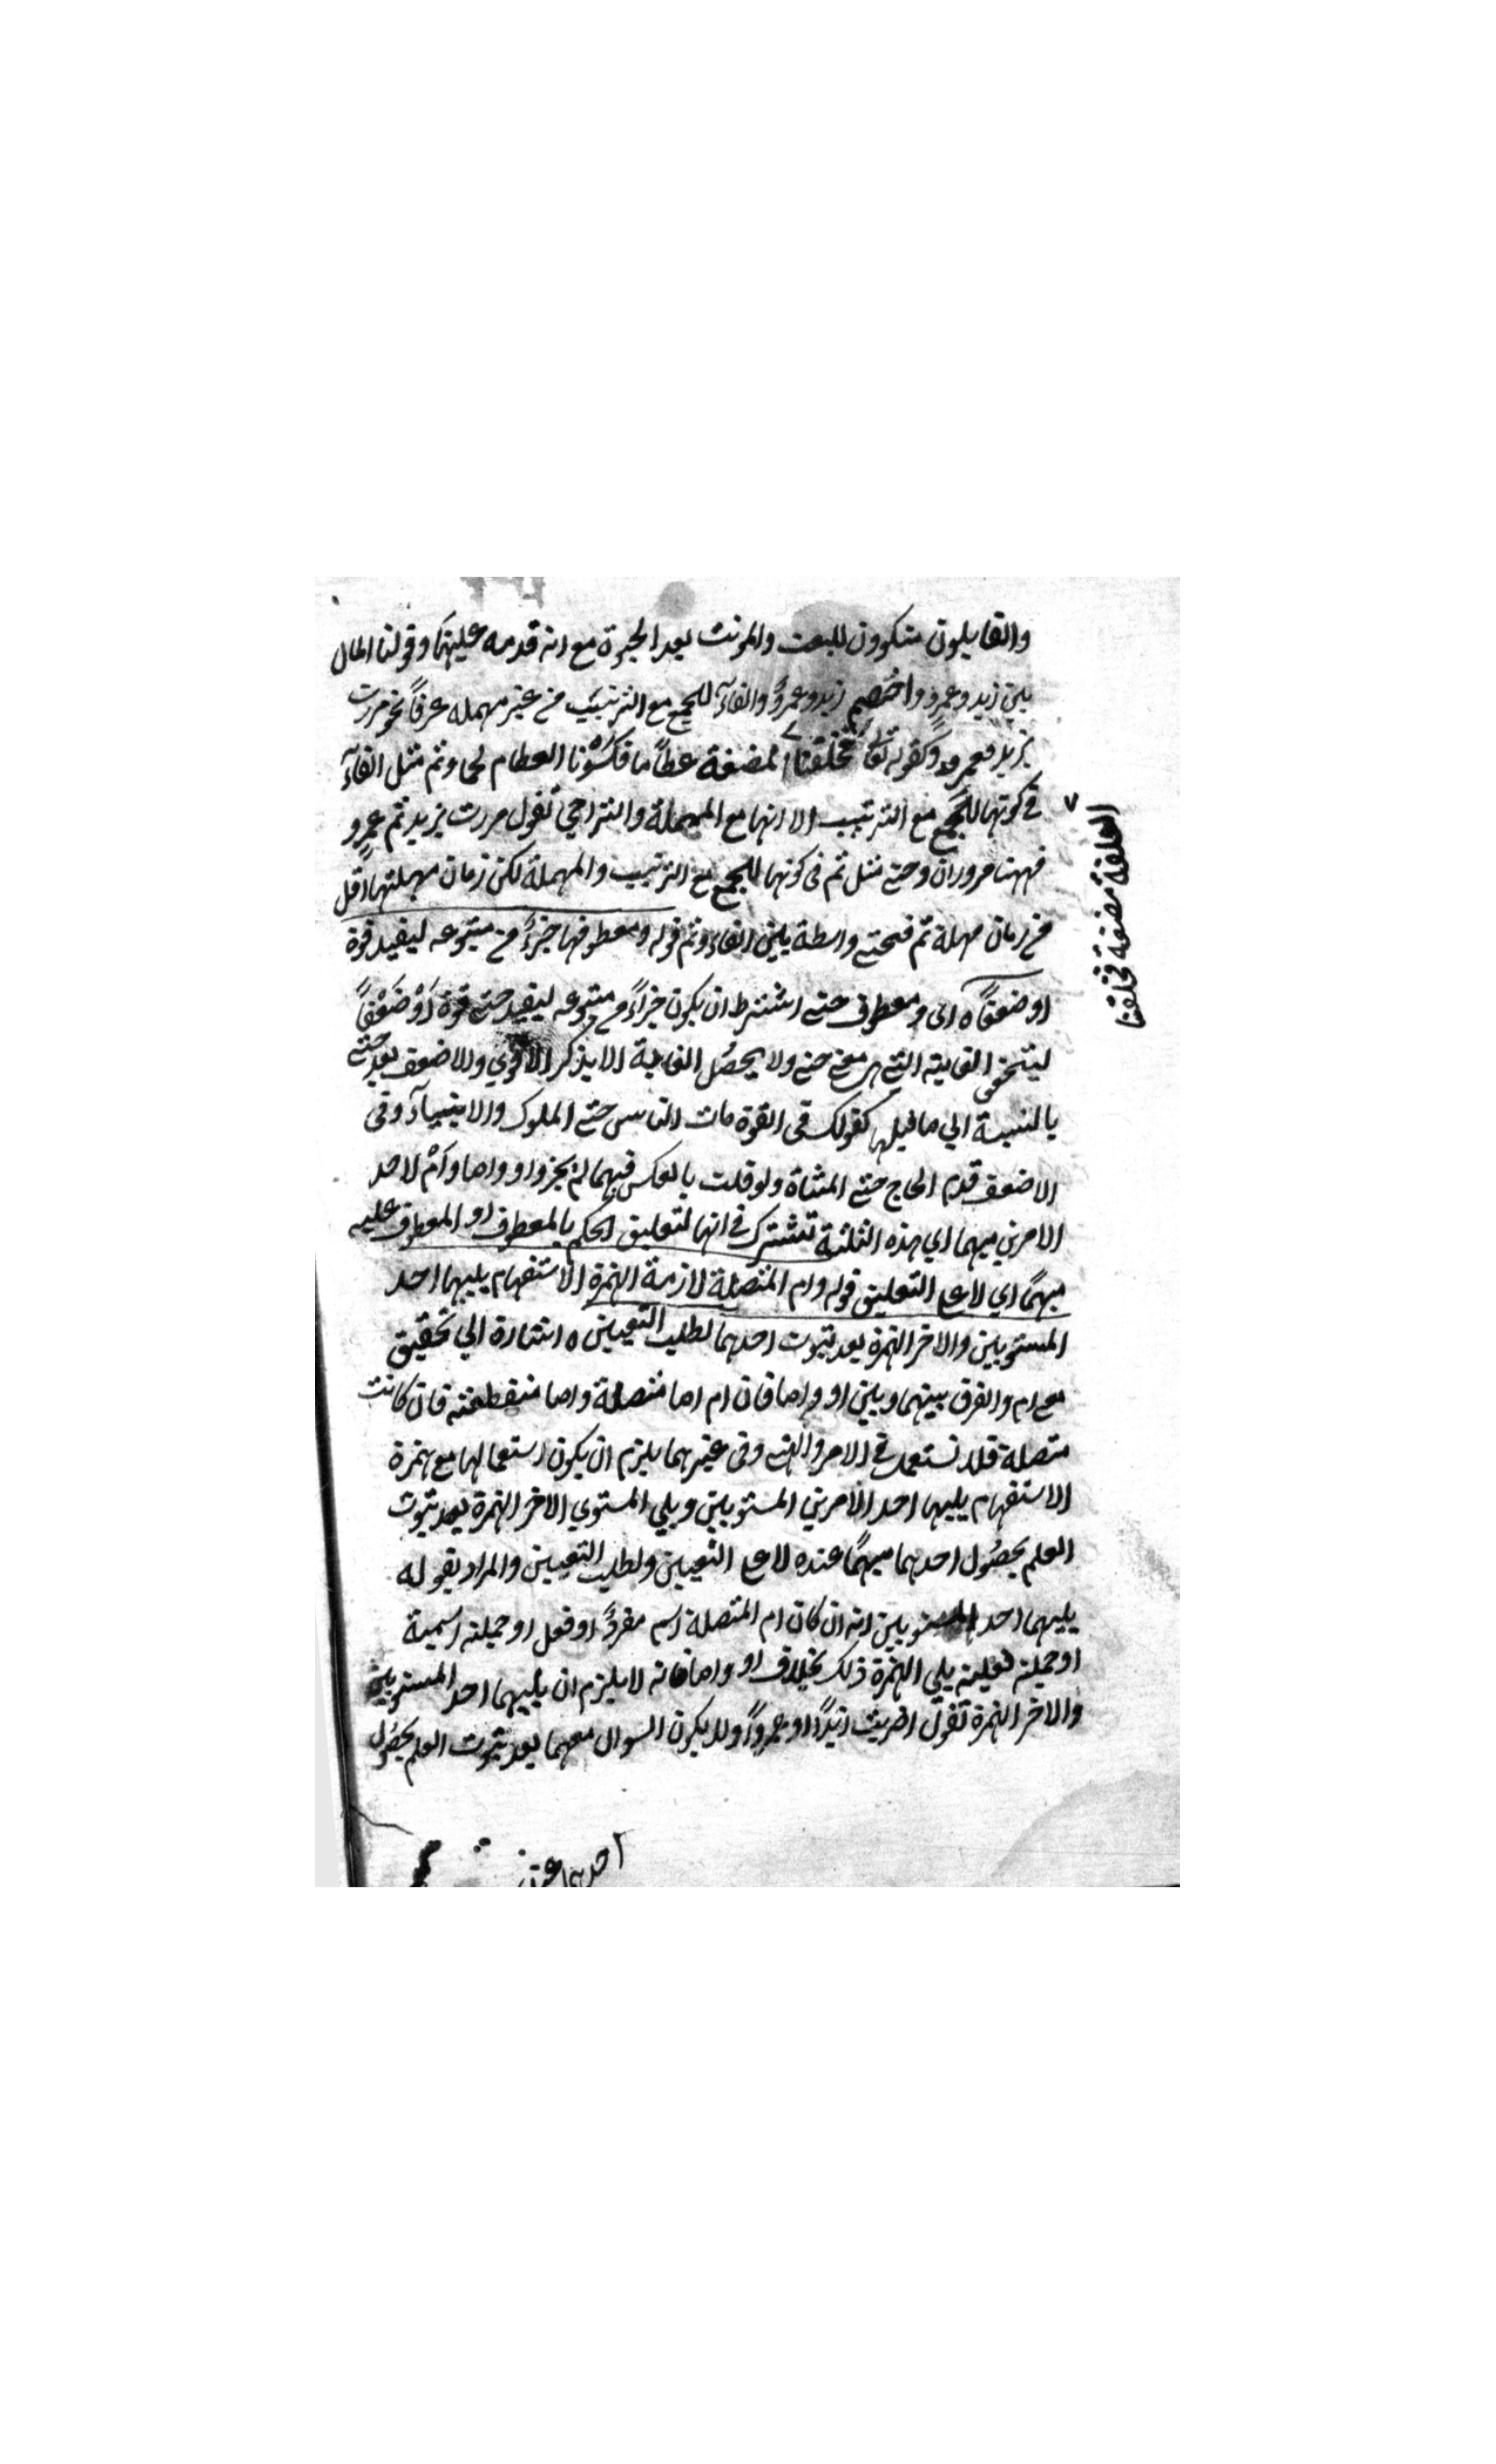 والقايلون منكرون للبعث والموت بعد الحيوة مع انه قدمه عليهما وقولنا المال
بين زيد وعمرو واختصم زيد وعمرو والفآء للجمع مع الترتيب من غير مهملة عرفًا نحو مررت
بزيد فعمرو وكقوله تعالى فخلقنا المضغة عظاما فكسونا العظام لحما وثم مثل الفآء
في كونها للجمع مع الترتيب الا انها مع المهملة والتراخي تقول مررت بزيد ثم عمرو
فههنا مروران وحتى مثل ثم في كونها للجمع مع الترتيب والمهملة لكن زمان مهملتها اقل
من زمان مهلة ثم فحتى واسطة بين الفاء وثم قوله ومعطوفها جزءً من متبوعه ليفيد قوة
او ضعفًا ه اى ومعطوف حتى اشترط ان يكون جزاءً من متبوعه ليفيد حتى قوة اَوْ ضَعْفًا
ليتحقق الغاية التي هي معنى حتى ولا يحصُل الغاية الا بذكر الاقوي والاضعف بعد حتى
بالنسبة الي ما قبلها كقولك في القوة مات الناس حتى الملوك والانبيآء وفى
الاضعف قدم الحاج حتى المشاة ولو قلت بالعكس فيهما لم يجز واو واما واَمْ لاحد
الامرين مبهما اي هذه الثلثة تشترك في انها لتعليق الحكم بالمعطوف او المعطوف عليه
مبهمًا اي لا على التعليق قوله وام المتصلة لازمة الهمزة الاستفهام يليها احد
المستويين والاخر الهمزة بعد ثبوت احدهما لطلب التعيين ه اشارة الي تحقيق
مع ام والفرق بينهما وبين او واما فان ام اما متصلة واما منقطعة فان كانت
متصلة فلا تستعمل في الامر والنهى وفى غيرهما يلزم ان يكون استعمالها مع همزة
الاستفهام يليها احد الامرين المستويين ويلي المستوي الاخر الهمزة بعد ثبوت
العلم بحصُول احدهما مبهمًا عنده لا على التعيين ولطلب التعيين والمراد بقوله
يليها احد المستويين انه ان كان ام المتصلة اسم مفردً او فعل او جملة اسمية
او جملة فعلية يلي الهمزة ذلك بخلاف او واما فانه لا يلزم ان يليهما احد المستويين
والاخر الهمزة تقول اضربت زيدًا او عمروًا ولا يكون السوال معهما بعد ثبوت العلم بحصُول
احدهما
العلقة مضغة فخلقنا